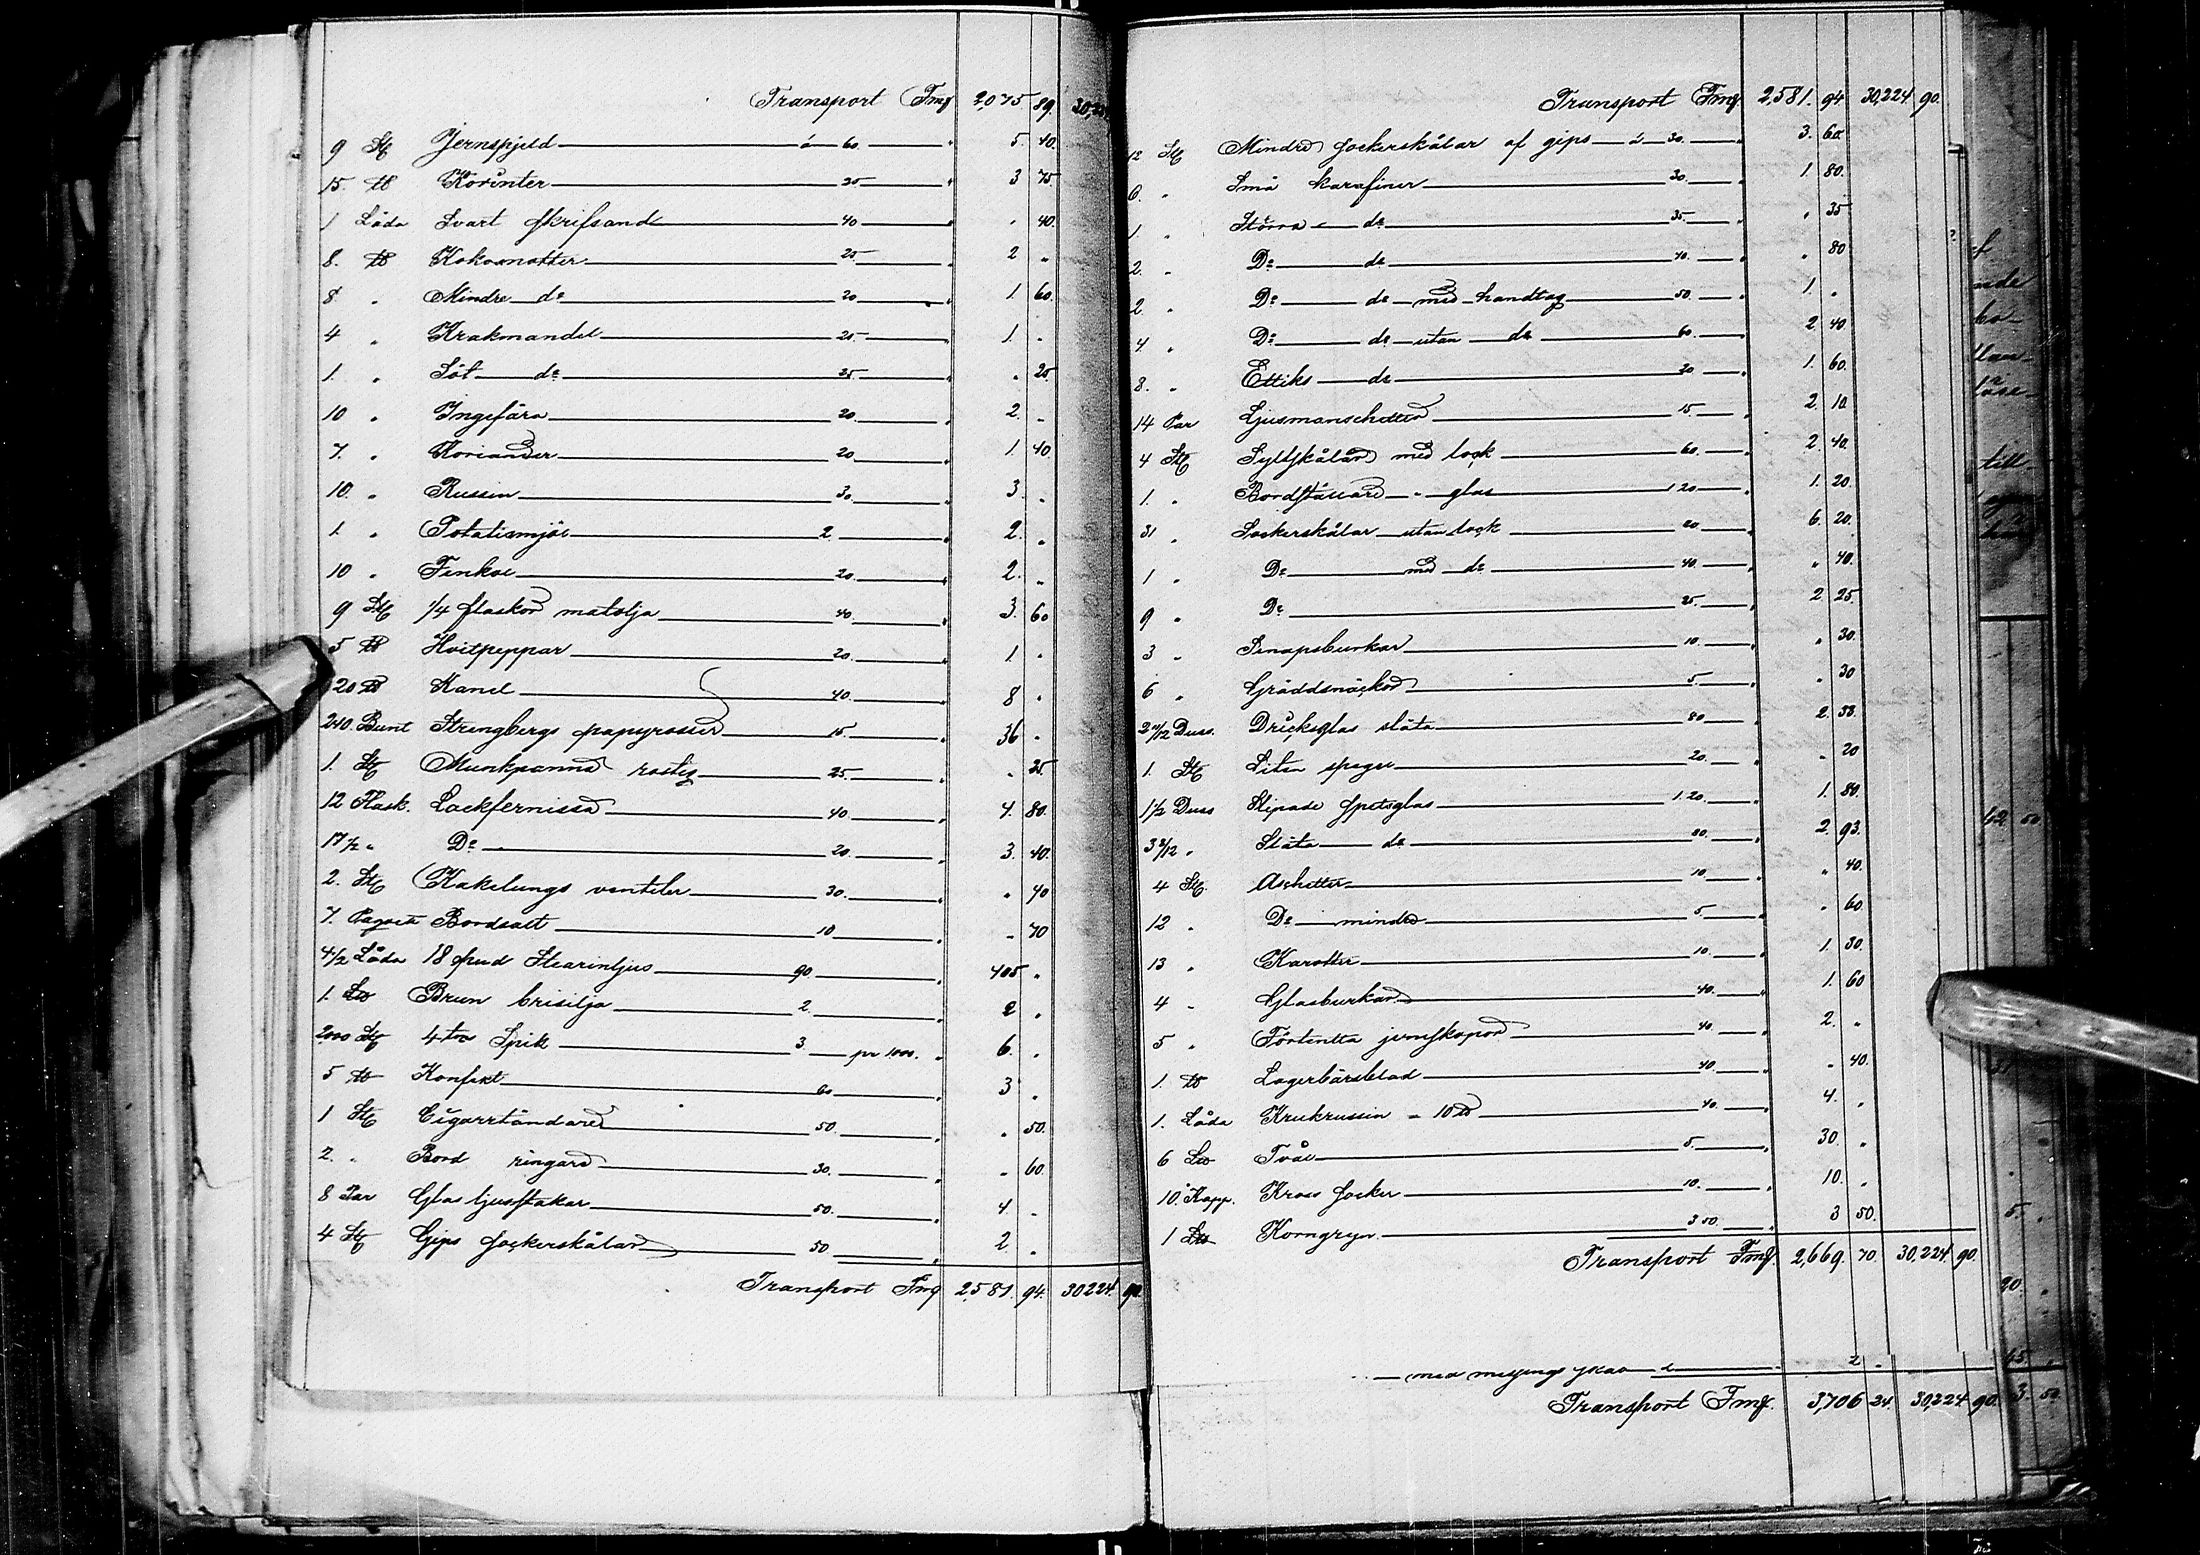 Transport Fmk 2,075 89. 30,22
9 St Jernspjeld á 60. " 5. 40.
15. ℔ Korinter 25 " 3 75
1 Låda Svart skrifsand 40 " " 40.
8. ℔ Kokosnötter 25 " 2 "
8 " Mindre do 20 " 1. 60.
4 " Krakmandel 25 " 1. "
1. " Söt do 25 " " 25.
10 " Ingefära 20 " 2. "
7. " Koriander 20 " 1. 40.
10. " Russin 30 " 3. "
1 " Potatismjöl 2 " 2. "
10 " Finkol 20. " 2. "
9 St 1/4 flaskor matolja 40 " 3. 60
5 ℔ Hvitpeppar 20. " 1. "
20 ℔ Kanel 40. " 8 "
240. Bunt Strengbergs papyrosser 15. " 36 "
1. St Munkpanna rostig 25. " " 25.
12 Flask. Lackfernissa 40 " 4. 80.
17 1/2 " Do 20. " 3. 40.
2. St Kakelungs ventiler 30. " " 40
7. Paquet Bordsalt 10 " " 70
4 1/2 Låda 18 pud Stearinljus 90. " 405 "
1. L℔ Brun brisilja 2. " 2 "
2000 St 4 tm Spik 3. pr 1000. " 6. "
5 ℔ Konfekt 60 " 3 "
1 St Cigarrtändare 50. " " 50.
2. " Bord ringare 30. " " 60.
8 Par Glas ljusstakar 50. " 4. "
4 St Gips sockerskålar 50 " 2 "
Transport Fmk 2,581. 94. 30224. 90.
Transport Fmk 2,581. 94 30,224 90.
12 St Mindre sockerskålar af gips á 30. " 3. 60.
6. " Små karafiner 30 " 1. 80.
1. " Större do 35. " " 35
2. " Do do 40. " " 80
2 " Do do med handtag 50. " 1. "
4 " Do do utan do 60 " 2 40
8. " Ettiks do 20 " 1. 60.
14 Par Ljusmanschetter 15. " 2. 10.
4 St Syltskålar med lock 60. " 2. 40.
1. " Bordstässare " glas 1 20 " 1. 20.
31 " Sockerskålar utan lock 20 " 6. 20.
1 " Do med do 40. " " 40.
9 " Do 25. " 2. 25.
3 " Senapsburkar 10. " " 30.
6 " Gräddsnäckor 5. " " 30
2 11/12 Duss. Dricksglas släta 80 " 2. 33.
1. St Liten spegel 20. " " 20
1 1/2 Duss Slipade spetsglas 1.20. " 1. 80.
3 8/12 " Släta do 80 " 2. 93.
4 St. Aschetter 10. " " 40.
12 " Do mindre 5. " " 60
13 " Karotter 10. " 1. 30.
4 " Glasburkar 40. " 1. 60
5 " Förtenta jernskopor 40. " 2. "
1. ℔ Lagerbärsblad 40 " " 40.
1. Låda Krukrussin = 10 ℔ 40. " 4. "
6 L℔ Tvål 5. " 30. "
10. Kapp. Kross socker 10. " 10. "
1 L℔ Korngryn 3 50. " 3 50.
Transport Fmk. 2,669. 70. 30,224. 90.
med messings 2 "
Transport Fmk. 3,706 24. 30,224 90. 3. 50